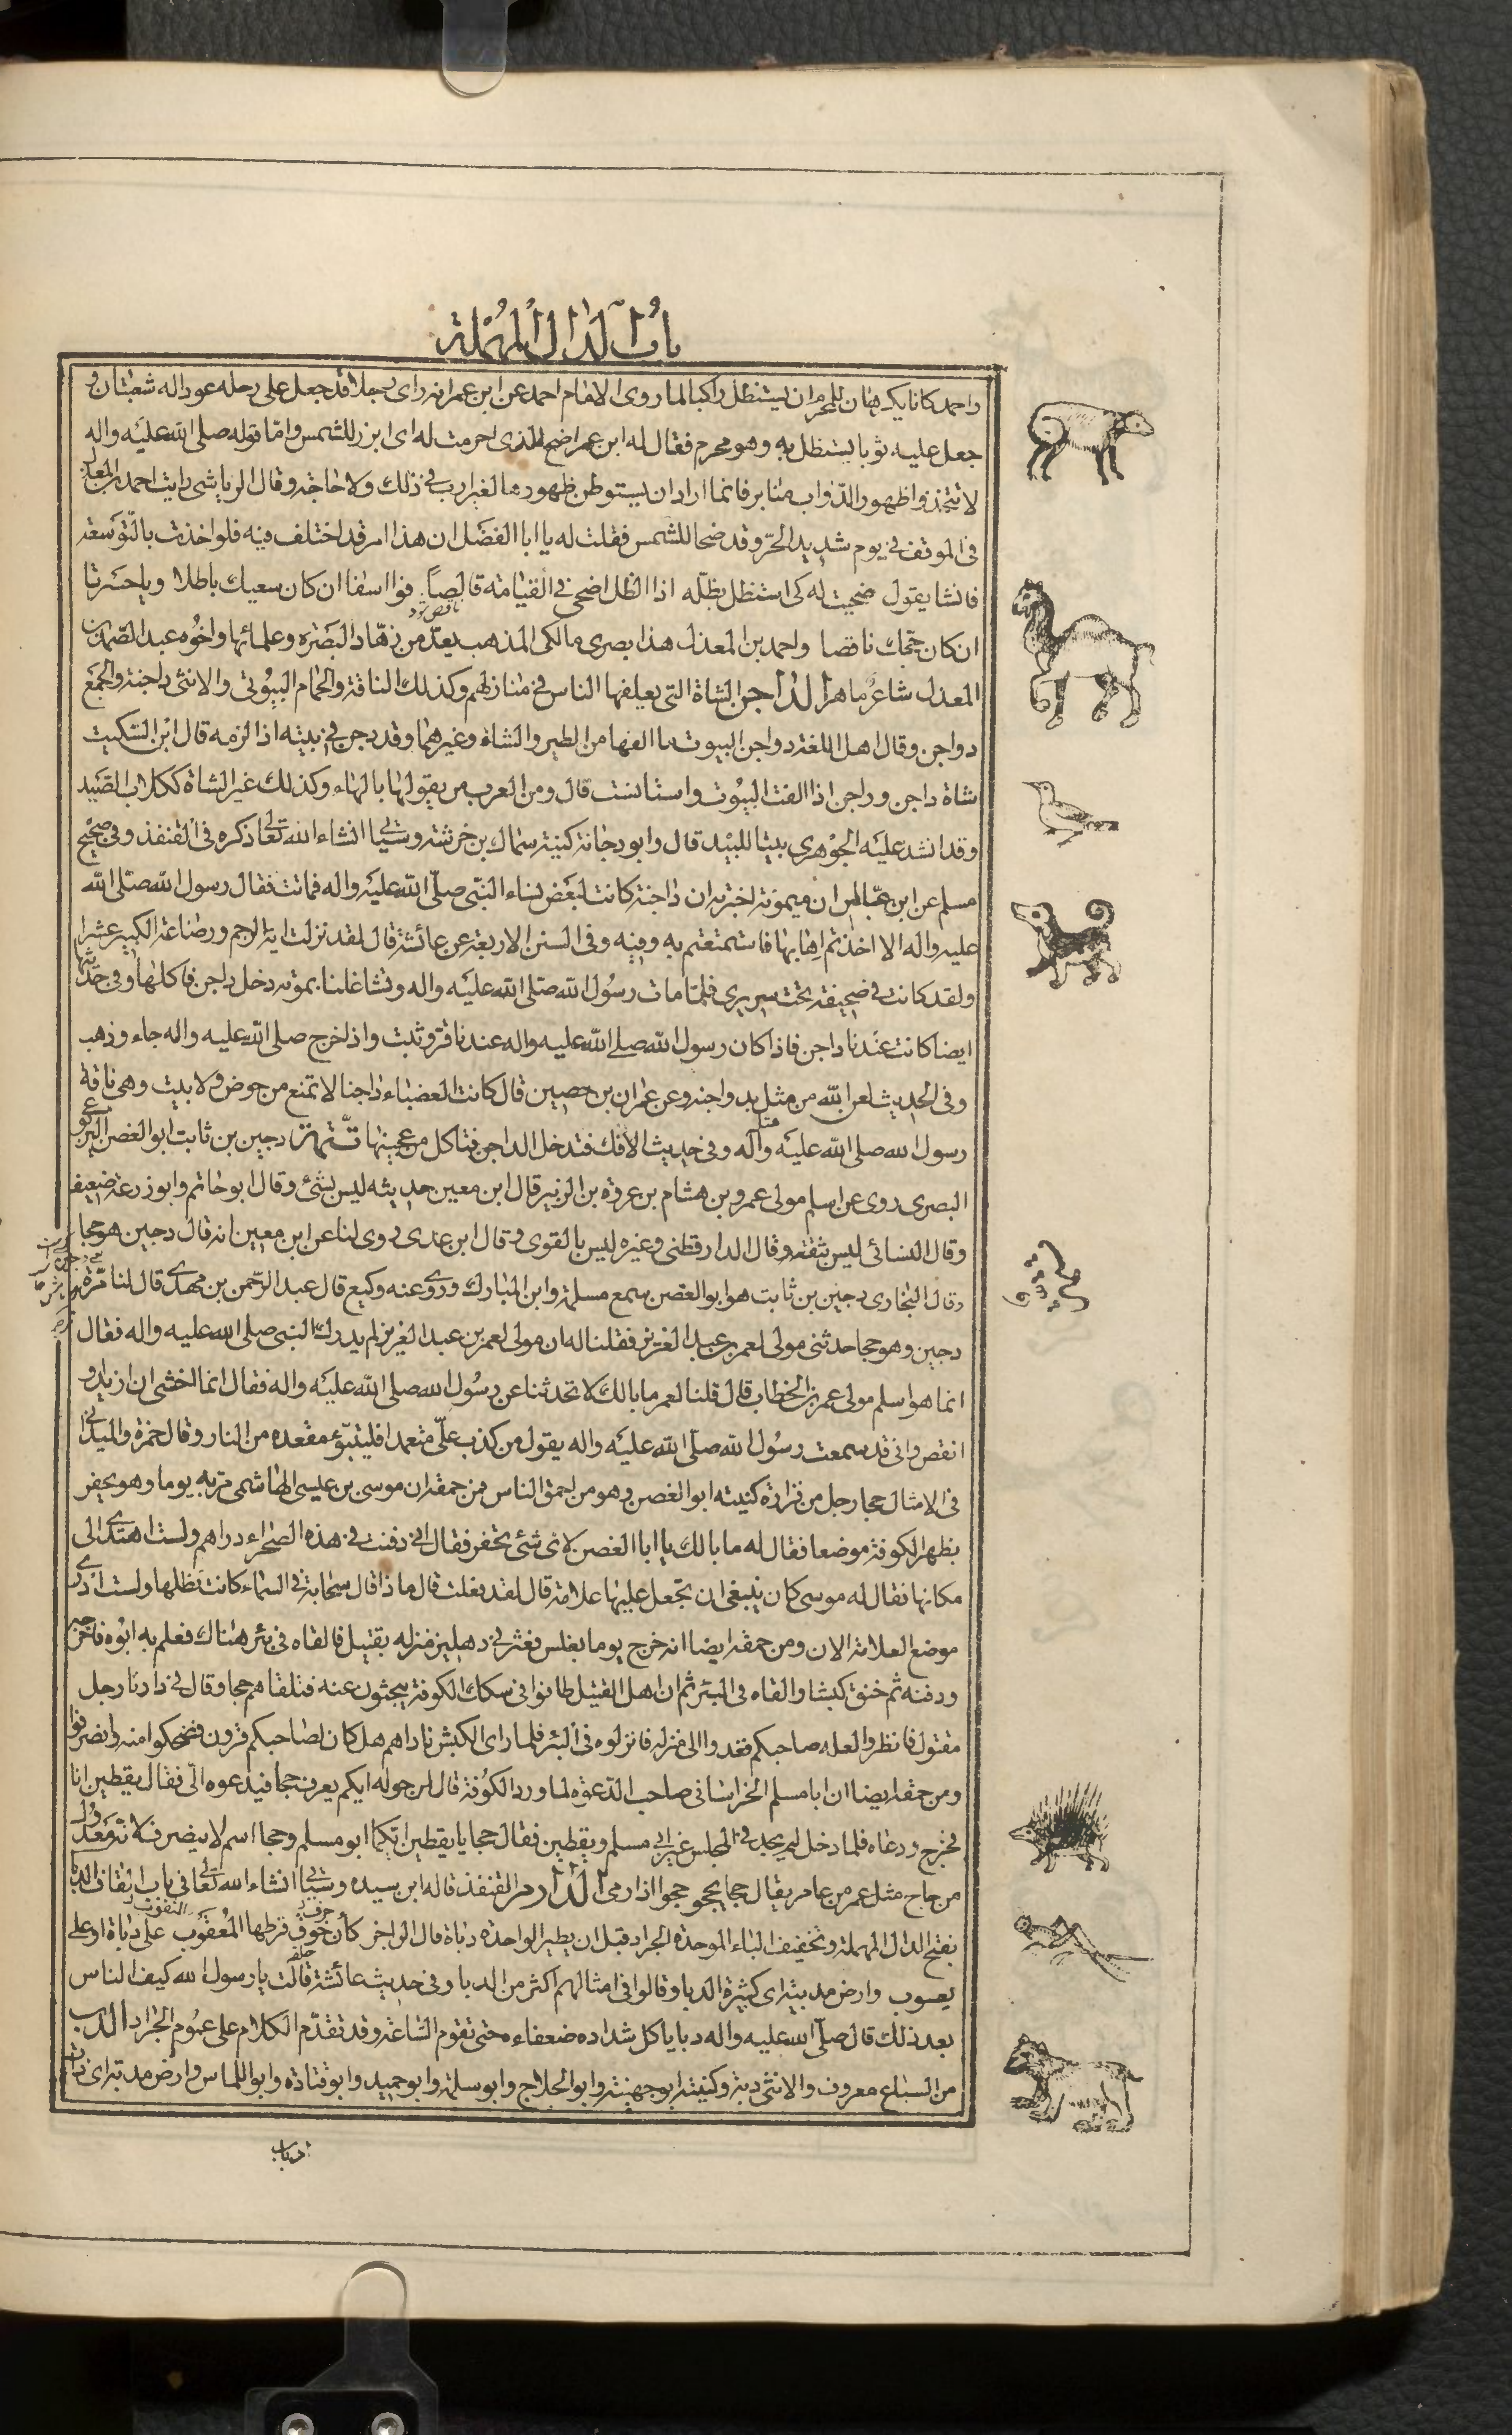 باب الدال المهملة
واحمد كانا يكرهان للمحرم ان يستظل راكبا لما روى الامام احمد عن ابن عمر انه راى رجلا قد جعل على رحله عودا له شعبتان و
جعل عليه ثوبا يستظل به وهو محرم فقال له ابن عمر اضح للذى احرمت له اى ابرز للشمس واما قوله صلى الله عليه واله
لا تتخذوا ظهور الدواب منابر فانما اراد ان يستوطن ظهورها لغير ارب فى ذلك ولا حاجة وقال الرياشى رايت احمد بن المعذل
فى الموقف فى يوم شديد الحر وقد ضحا للشمس فقلت له يا ابا الفضل ان هذا امر قد اختلف فيه فلو اخذت بالتوسعة
فانشا يقول ضحيت له كى استظل بظله اذا الظل اضحى فى القيامة قالصا فوا اسفا ان كان سعيك باطلا ويا حسرتا
ان كان حجك ناقصا واحمد بن المعذل هذا بصرى مالكى المذهب يعد من زهاد البصره وعلمائها واخوه عبد الصمد بن
المعذل شاعر ماهر الداجن الشاة التى يعلفها الناس فى منازلهم وكذلك الناقة والحمام البيوتى والانثى داجنة والجمع
دواجن وقال اهل اللغة دواجن البيوت ما الفها من الطير والشاة وغيرهما وقد دجن فى بيته اذا لزمه قال ابن السكيت
شاة داجن وراجن اذا الفت البيوت واستانست قال ومن العرب من يقولها بالهاء وكذلك غير الشاة ككلاب الصيد
وقد انشد عليه الجوهرى بيتا للبيد قال وابو دجانة كنية سماك بن خرشة وسياتى انشاء الله تعالى ذكره فى القنفذ وفى صحيح
مسلم عن ابن عباس ان ميمونة اخبرته ان داجنة كانت لبعض نساء النبى صلى الله عليه واله فماتت فقال رسول الله صلى الله
عليه واله الا اخذتم اهابها فاستمتعتم به وفيه وفى السنن الاربعة عن عائشة قال لقد نزلت اية الرجم ورضاعة الكبير عشرا
ولقد كانت فى صحيفة تحت سريرى فلما مات رسول الله صلى الله عليه واله وتشاغلنا بموته دخل داجن فاكلها وفى حديثها
ايضا كانت عندنا داجن فاذا كان رسول الله صلى الله عليه واله عندنا قر وثبت واذا خرج صلى الله عليه واله جاء وذهب
وفى الحديث لعن الله من مثل بدواجنه وعن عمران بن حصين قال كانت العضباء داجنا لا تمنع من حوض ولا بيت وهى ناقة
رسول الله صلى الله عليه وآله وفى حديث الافك فتدخل الداجن فتاكل من عجينها تتمة دجين بن ثابت ابو الغصن اليربوعى
البصرى روى عن اسلم مولى عمر وبن هشام بن عروة بن الزبير قال ابن معين حديثه ليس بشئ وقال ابو حاتم وابو زرعة ضعيف
وقال النسائى ليس بثقة وقال الدارقطنى وغيره ليس بالقوى وقال ابن عدى روى لنا عن ابن معين انه قال دجين هو جحا
وقال البخارى دجين بن ثابت هو ابو الغصن سمع مسلمة وابن المبارك وروى عنه وكيع قال عبد الرحمن بن مهدى قال لنا مرة
دجين وهو جحا حدثنى مولى لعمر بن عبد العزيز فقلنا له ان مولى لعمر بن عبد العزيز لم يدرك النبى صلى الله عليه واله فقال
انما هو اسلم مولى عمر بن الخطاب قال قلنا لعمر ما بالك لا تحدثنا عن رسول الله صلى الله عليه واله فقال انما اخشى ان ازيد او
انقص وانى قد سمعت رسول الله صلى الله عليه واله يقول من كذب على متعمدا فليتبوء مقعده من النار وقال حمزة والميدانى
فى الامثال جحا رجل من فزارة كنيته ابو الغصن وهو من احمق الناس فمن حمقه ان موسى بن عيسى الهاشمى مر به يوما وهو يحفر
بظهر الكوفة موضعا فقال له ما بالك يا ابا الغصن لاى شئ تحفر فقال انى دفنت فى هذه الصحراء دراهم ولست اهتدى الى
مكانها فقال له موسى كان ينبغى ان تجعل عليها علامة قال لقد فعلت قال ماذا قال سحابة فى السماء كانت تظلها ولست ادرى
موضع العلامة الان ومن حمقه ايضا انه خرج يوما بغلس فعثر فى دهليز منزله بقتيل فالقاه فى بئر هناك فعلم به ابوه فاخرجه
ودفنه ثم خنق كبشا والقاه فى البئر ثم ان اهل القتيل طافوا فى سكك الكوفة يبحثون عنه فتلقاهم جحا وقال فى دارنا رجل
مقتول فانظروا لعله صاحبكم فغدوا الى منزله فانزلوه فى البئر فلما راى الكبش ناداهم هل كان لصاحبكم قرون فضحكوا منه وانصرفوا
ومن حمقه ايضا ان ابا مسلم الخراسانى صاحب الدعوة لما ورد الكوفة قال لمن حوله ايكم يعرف جحا فيدعوه الى فقال يقطين انا
فخرج ودعاه فلما دخل لم يجد فى المجلس غير ابى مسلم ويقطين فقال جحا يا يقطين ايكما ابو مسلم وجحا اسم لا ينصرف لانه معدول
من جاح مثل عمر من عامر يقال جحا يجحو جحوا اذا رمى الدارم القنفذ قاله ابن سيده وسياتى انشاء الله تعالى فى باب القاف الدبا
بفتح الدال المهملة وتخفيف الباء الموحدة الجراد قبل ان يطير الواحدة دباة قال الراجز كأن خوق قرطها المعقوب على دباة او على
يعسوب وارض مدبية اى كثيرة الدبا وقالوا فى امثالهم اكثر من الدبا وفى حديث عائشة قالت يا رسول الله كيف الناس
بعد ذلك قال صلى الله عليه واله دبا ياكل شداده ضعفاءه حتى تقوم الساعة وقد تقدم الكلام على عموم الجراد الدب
من السباع معروف والانثى دبة وكنيته ابو جهينة وابو الجلاج وابو سلمة وابو حميد وابو قتادة وابو اللماس وارض مدبة اى ذات
ادباب